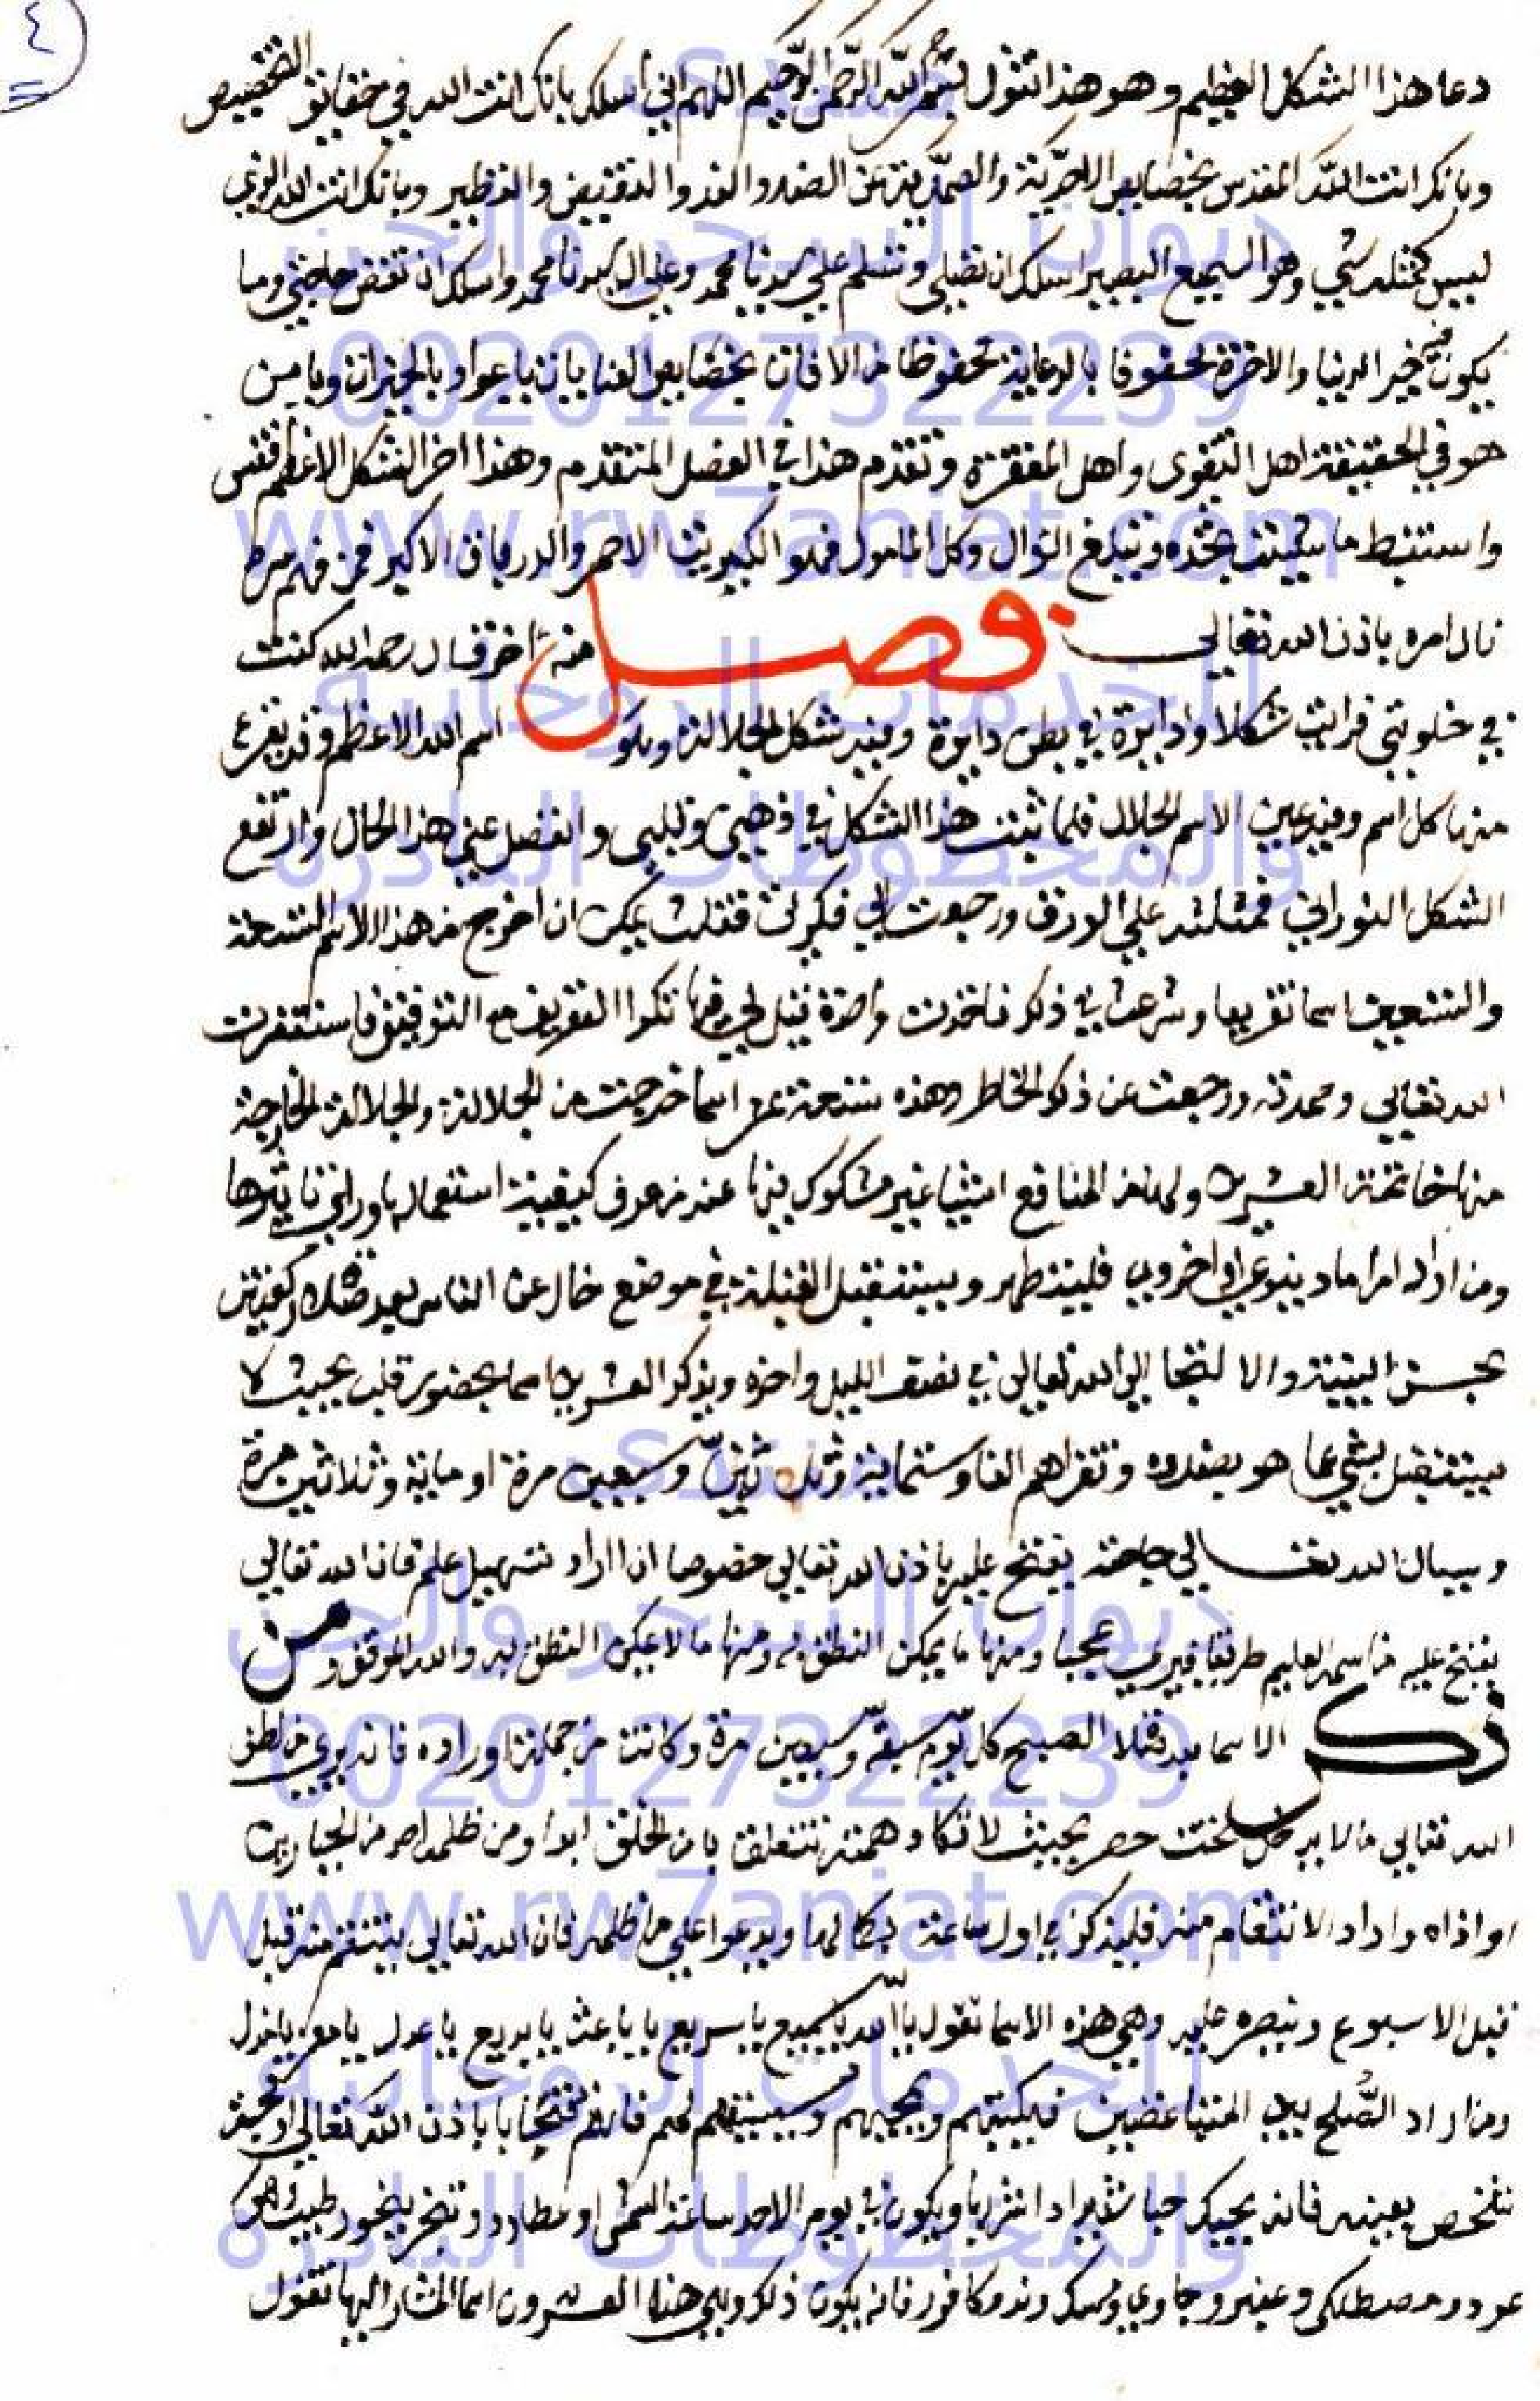 ٤
دعا هذا الشكل العظيم وهو هذا تقول بسم الله الرحمن الرحيم اللهم اني اسلك بانك انت الله في حقايق التخصيص
وبانك انت الله المقدس بخصايص الاحدية والصمدية عن الضد والند والنقيض والنظير وبانك انت الله الذي
ليس كمثله شي وهو السميع البصير اسلك ان تصلي وتسلم علي سيدنا محمد وعلي ال سيدنا محمد واسلك ان تقض حاجتي وما
يكون فيه خير الدنيا والاخرة محفوفا بالرعاية محفوظا من الافات بخصايص العنايات يا عواد بالخيرات ويا من
هو في الحقيقة اهل التقوى واهل المغفرة وتقدم هذا في الفصل المتقدم وهذا اخر الشكل الاعظم فقس
واستنبط ما شيت تجده وتبلغ وكل المامول فهو الكبريت الاحمر والدرياق الاكبر فمن فهم سره
نال امره باذن الله تعالي فصل منه اخر قال رحمه الله كنت
في خلوتي فرايت شكلا ودايرة في بطن دايرة وفيه شكل الجلالة وهو اسم الله الاعظم وقد تفرع
منها كل اسم وفيه عين الاسم الجلال فلما ثبت هذا الشكل في ذهني وقلبي وانفصل عني هذا الحال وارتفع
الشكل النوراني فمثلته علي الورق ورجعت الي فكرتي فقلت يمكن ان اخرج من هذا الاسم التسعة
والتسعين اسما تفريعا وشرعت في ذلك فاخذت واحدة قيل لي فما تكوا التفريق مع التوفيق فاستغفرت
الله تعالي وحمدته ورجعت عن ذلك الخاطر وهذه تسعة عشر اسما خرجت من الجلالة والجلالة الخارجة
منها خاتمة العشرين ولها من المنافع اشيا غير مشكوك فيها عند من عرف كيفية استعمالها وراي تاثيرها
ومن اراد امرا ما دينوي او اخروي فليتطهر ويستقبل القبلة في موضع خال عن الناس بعد صلاة ركعتين
بحسن النية والالتجا الي الله تعالي في نصف الليل واخره ويذكر العشرين اسما بحضور قلب بحيث لا
يستقبل بشي عما هو بصدده وتقراهم الفا وستماية وثلاثين وسبعين مرة او ماية وثلاثين مرة
ويسال الله تعالي حاجته يفتح عليه باذن الله تعالي خصوصا ان اراد تسهيل علم فان الله تعالي
يفتح عليه من اسمه العليم طريقا فيري عجبا ومنها ما يمكن النطق به ومنها ما لا يمكن النطق به والله الموفق ومن
ذكر الاسما بعد صلاة الصبح كل يوم سبعة وسبعين مرة وكانت من جملة اوراده فانه يري من لطف
الله تعالي ما لا يدخل تحت حصر بحيث لا تكاد همته تتعلق باحد من الخلق ابدا ومن ظلمه احد من الجبارين
او اذاه واراد الانتقام منه فليذكر في اول ساعة ويدعوا علي من ظلمه فان الله تعالي ينتقم منه قبل
قبل الاسبوع وينصره عليه وهي هذه الاسما تقول يا الله يا سميع يا سريع يا باعث يا بديع يا عدل يا معز يا مذل
ومن اراد الصلح بين المتباغضين فيكتبهم ويمحيهم ويسقيهم لهم فانهم يتحابا باذن الله تعالي او محبة
شخص بعينه فانه يحبك حبا شديدا ويكون في يوم الاحد ساعة الشمس او عطارد وتبخر ببخور طيب
عود ومصطكي وعنبر وجاوي ومسك وند وكافور فانه يكون ذلك وهي هذه العشرون اسما المشار اليها تقول
منتدى
ديوان السحر والجن
0020127322239
www.rw7aniat.com
للخدمات الروحانية
والمخطوطات النادرة
منتدى
ديوان السحر والجن
0020127322239
www.rw7aniat.com
للخدمات الروحانية
والمخطوطات النادرة